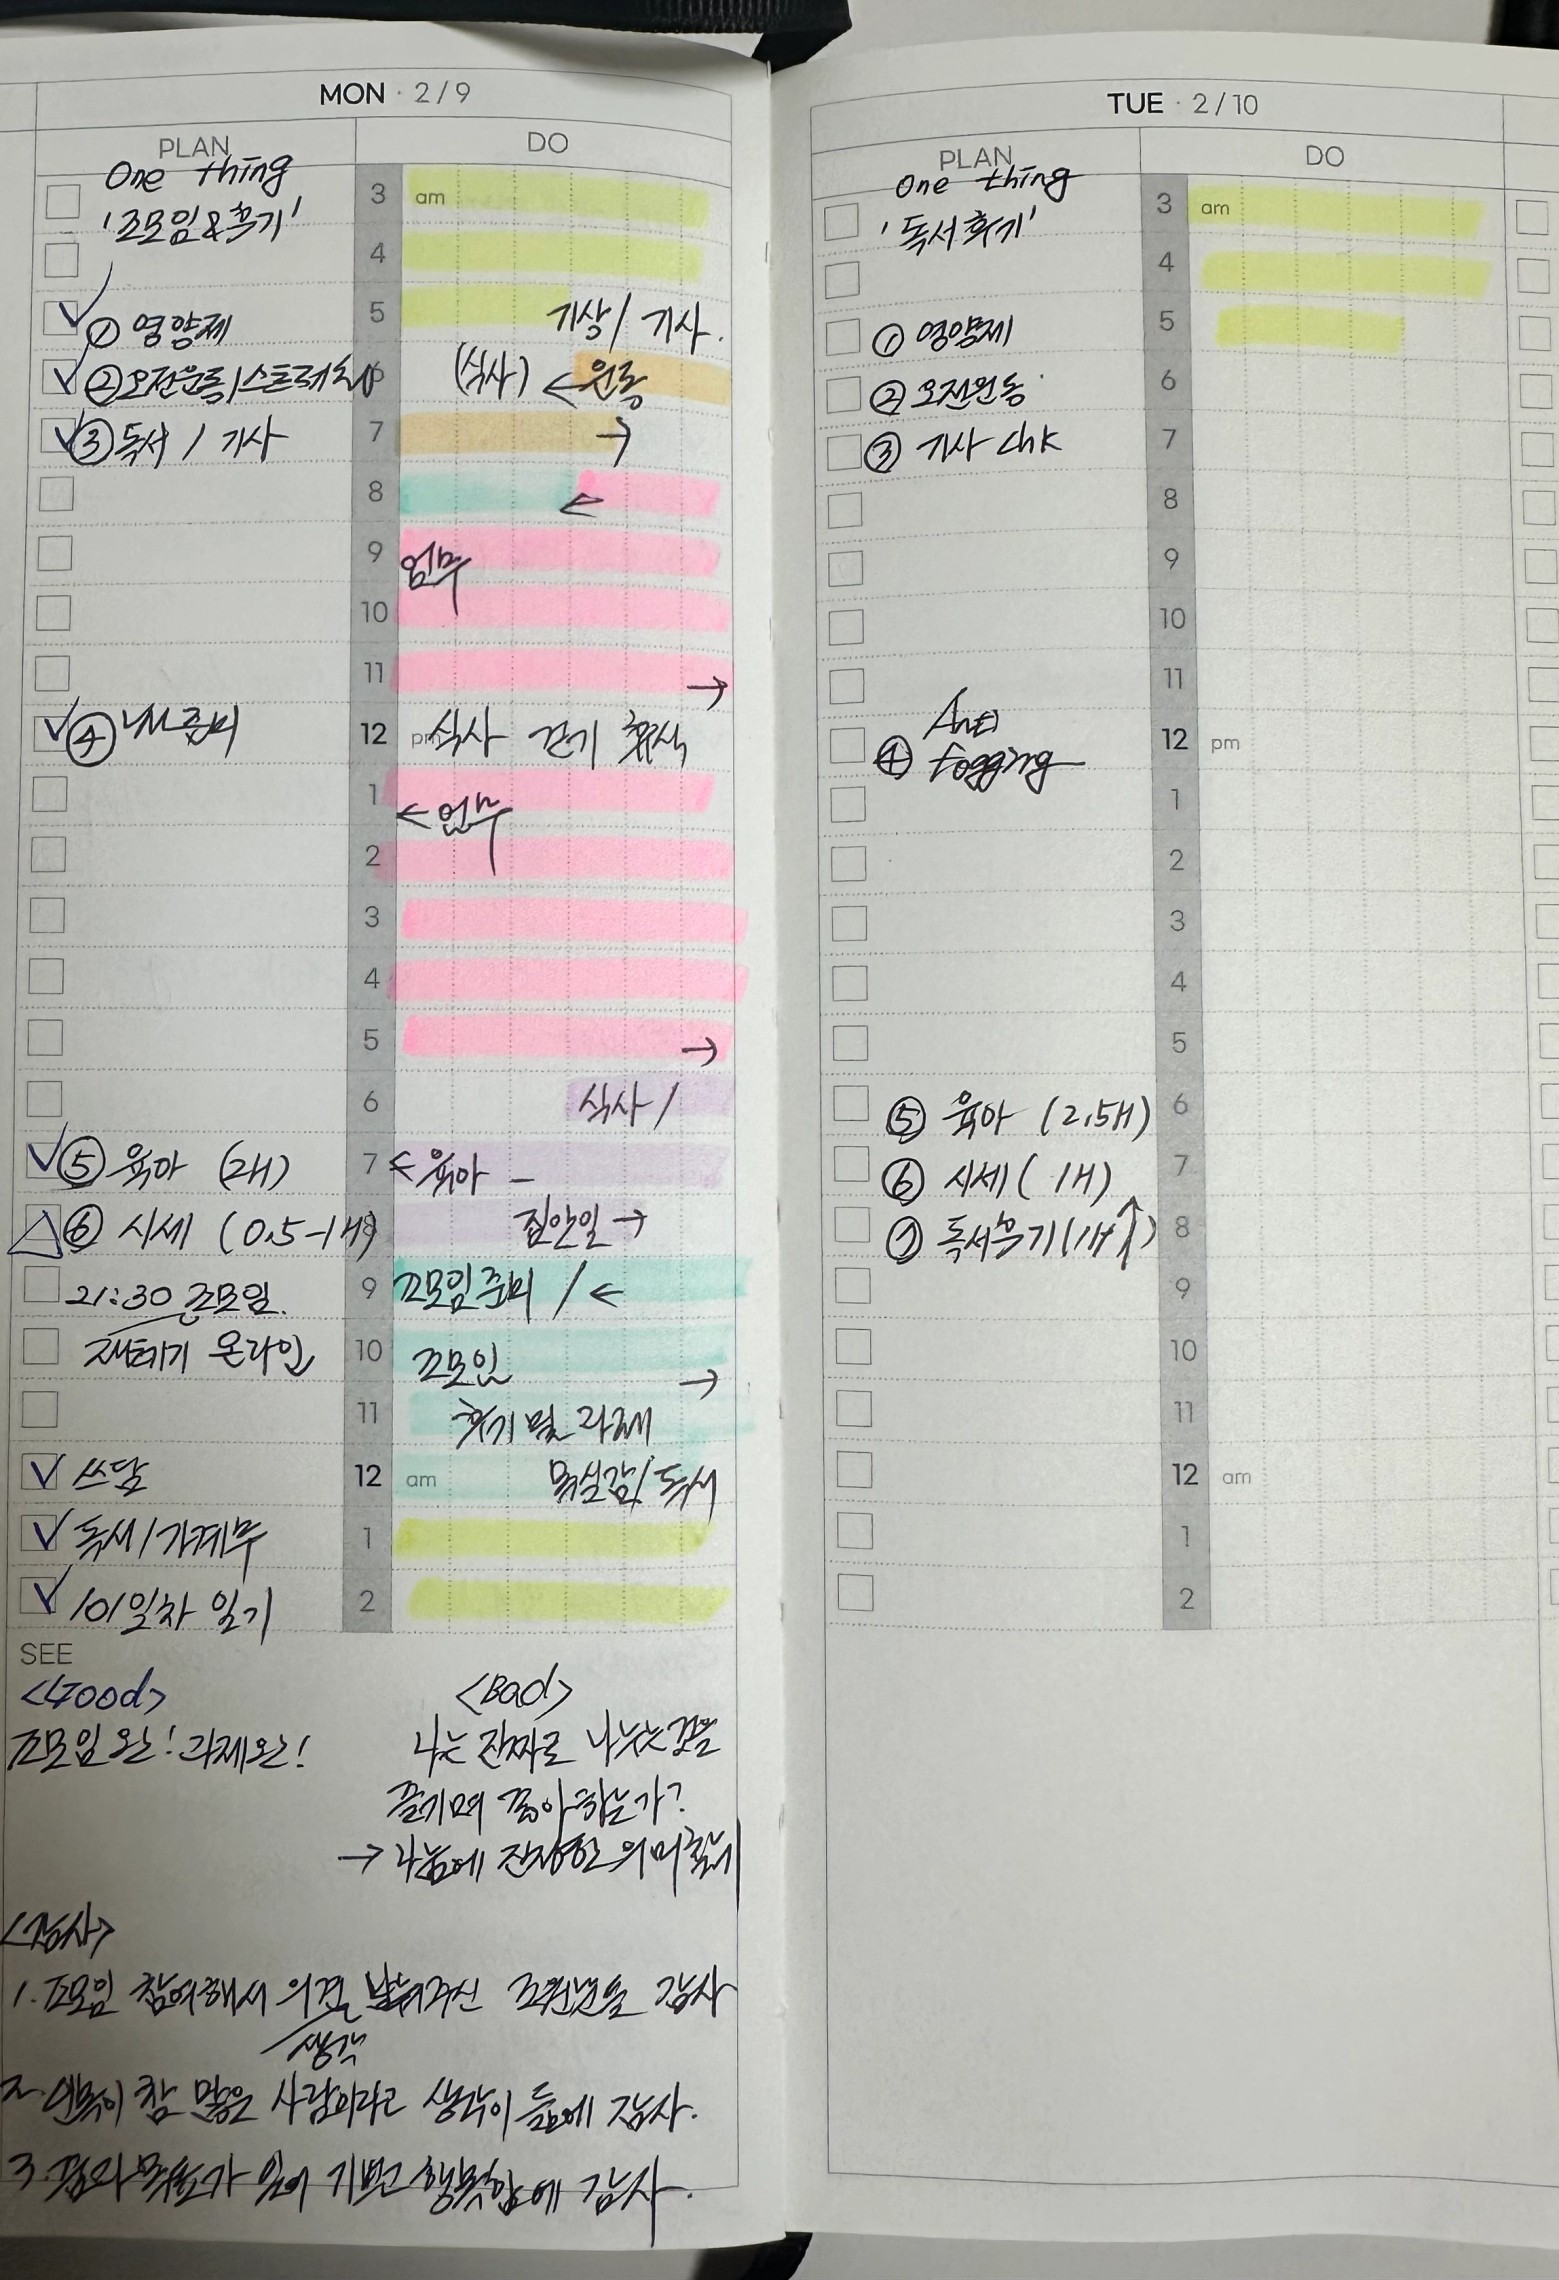 MON · 2/9
PLAN
DO
One thing
'조모임&후기'
① 영양제
② 오전운동/스트레칭
③ 독서 / 기사
④ 준비
⑤ 육아 (2H)
⑥ 시세 (0.5-1H)
21:30 조모임.
재테기 온라인
쓰담
독서/가계부
101일차 일기
3 am
4
5 기상/ 기사.
6 (식사) ← 운동
7 →
8 ←
9 업무
10
11 →
12 pm 식사 걷기 휴식
1
← 업무
2
3
4
5 →
6 식사 /
7 ← 육아 -
8 집안일 →
9 조모임준비 / ←
10 조모임 →
11 후기 및 과제
12 am 목실감/독서
1
2
SEE
<Good>
조모임 완! 과제완!
<Bad>
나는 진짜로 나누는것을
즐기며 좋아하는가?
→ 나눔에 진정한 의미
<감사>
1. 조모임 참여해서 의견 나눠주신 조원분들 감사
생각
2. 인복이 참 많은 사람이라고 생각이 듬에 감사.
3. 꿈과 목표가 있어 기쁘고 행복함에 감사.
TUE · 2/10
PLAN
DO
One thing
'독서후기'
① 영양제
② 오전운동
③ 기사 chk
Anti
④ fogging
⑤ 육아 (2.5H)
⑥ 시세 ( 1H)
⑦ 독서후기 (1H↑)
3 am
4
5
6
7
8
9
10
11
12 pm
1
2
3
4
5
6
7
8
9
10
11
12 am
1
2